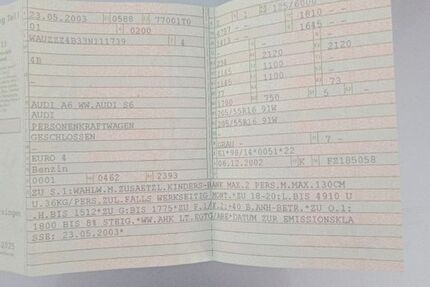 23.05.2003 0588 77001T0
01 0200
WAUZZZ4B33N111739 4
4B
AUDI A6 WW.AUDI S6
AUDI
PERSONENKRAFTWAGEN
GESCHLOSSEN
-
EURO 4
Benzin
0001 0462 2393
1 125/6000
4797 - - 1810 -
1453 - - 1645 -
- -
- 2120 2120
1145 1100 -
1145 1100 -
- - 73
- - 5 -
1700 750
205/55R16 91W
205/55R16 91W
-
GRAU - 7 -
E1*98/14*0051*22
06.12.2002 K FZ185058
ZU S.1:WAHLW.M.ZUSAETZL.KINDERS-BANK MAX.2 PERS.M.MAX.130CM
U.36KG/PERS.ZUL.FALLS WERKSEITIG MONT.*ZU 18-20:L.BIS 4910 U
.H.BIS 1512*ZU G:BIS 1775*ZU *40 B.ANH-BETR.*ZU O.1:
1800 BIS 8% STEIG.*WW.AHK LT.EGTG/ABE*DATUM ZUR EMISSIONSKLA
SSE: 23.05.2003*